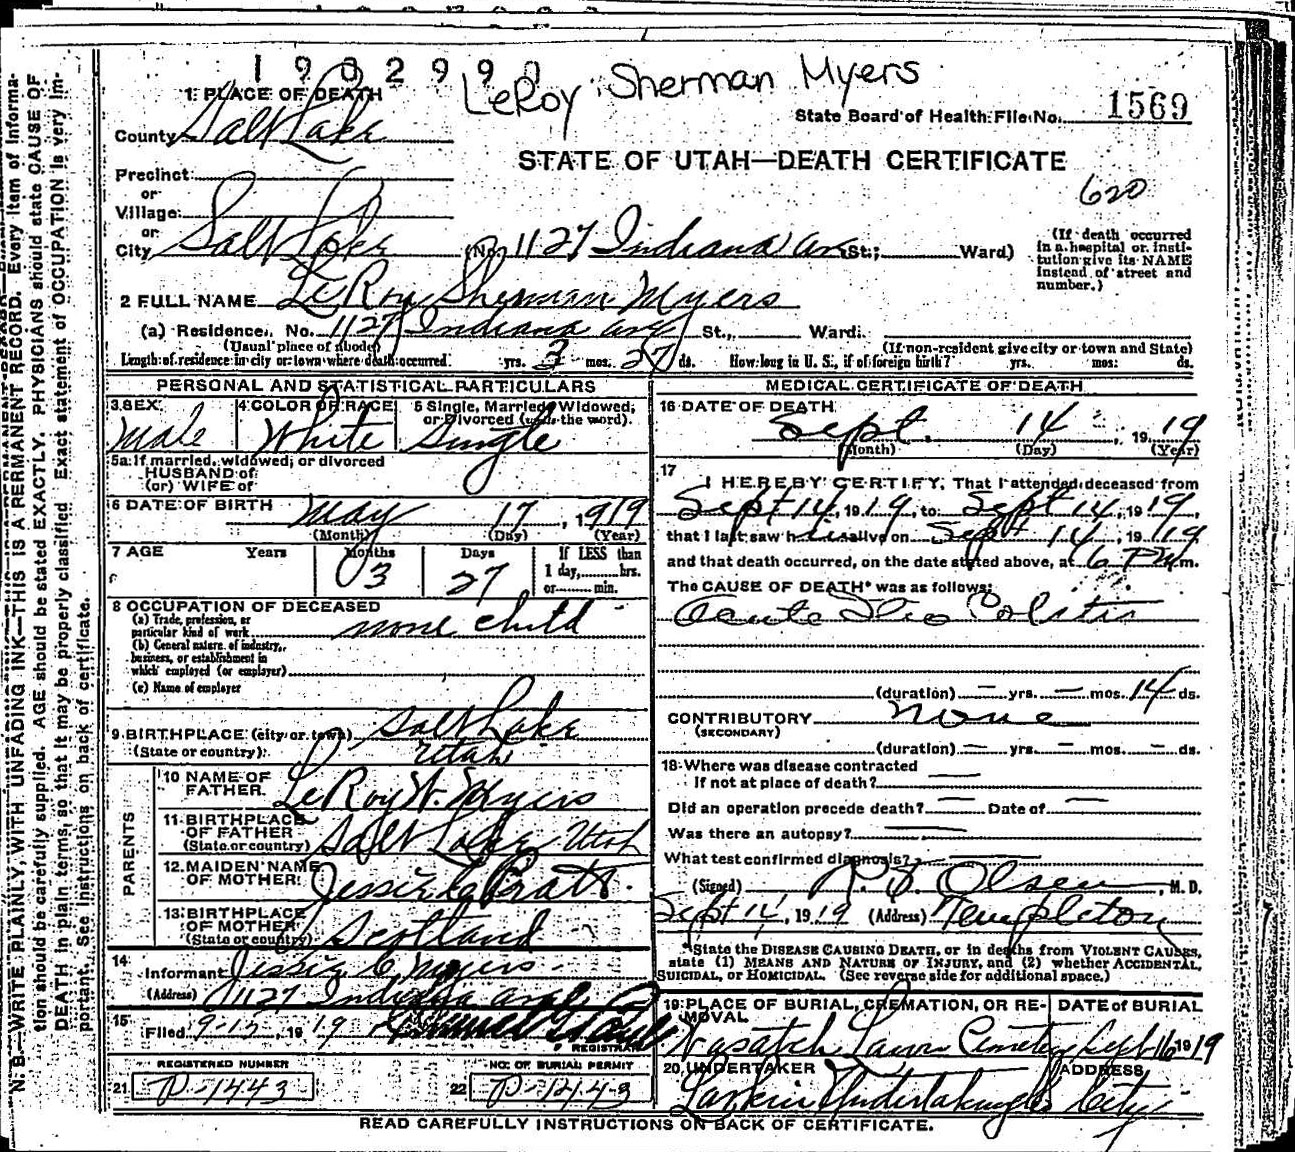 LeRoy Sherman Myers
1 PLACE OF DEATH
State Board of Health File No. 1569
County Salt Lake
STATE OF UTAH—DEATH CERTIFICATE
Precinct
or
Village
or
620
City Salt Lake (No. 1127 Indiana av St.; Ward)
(If death occurred in a hospital or institution give its NAME instead of street and number.)
2 FULL NAME LeRoy Sherman Myers
(a) Residence. No. 1127 Indiana ave St., Ward.
(Usual place of abode) (If non-resident give city or town and State)
Length of residence in city or town where death occurred. yrs. 3 mos. 27 ds. How long in U. S., if of foreign birth? yrs. mos. ds.
PERSONAL AND STATISTICAL PARTICULARS
3 SEX Male
4 COLOR OR RACE White
5 Single, Married, Widowed, or Divorced (write the word). Single
5a If married, widowed, or divorced
HUSBAND of
(or) WIFE of
6 DATE OF BIRTH May 17, 1919
(Month) (Day) (Year)
7 AGE Years Months 3 Days 27 If LESS than 1 day, hrs. or min.
8 OCCUPATION OF DECEASED
(a) Trade, profession, or particular kind of work none child
(b) General nature of industry, business, or establishment in which employed (or employer)
(c) Name of employer
9 BIRTHPLACE (city or town) Salt Lake
(State or country) Utah
PARENTS
10 NAME OF FATHER LeRoy W. Myers
11 BIRTHPLACE OF FATHER (State or country) Salt Lake Utah
12 MAIDEN NAME OF MOTHER Jessie C Pratt.
13 BIRTHPLACE OF MOTHER (State or country) Scotland
14 Informant Jessie C. Myers
(Address) 1127 Indiana ave
15 Filed 9-15, 1919
REGISTRAR
REGISTERED NUMBER
21 P-1443
NO. OF BURIAL PERMIT
22 P-1443
MEDICAL CERTIFICATE OF DEATH
16 DATE OF DEATH
Sept. 14, 1919
(Month) (Day) (Year)
17 I HEREBY CERTIFY, That I attended deceased from
Sept 14, 1919, to Sept 14, 1919,
that I last saw h is alive on Sept 14, 1919
and that death occurred, on the date stated above, at 6 PM m.
The CAUSE OF DEATH* was as follows:
Acute Ileo Colitis
(duration) — yrs. — mos. 14 ds.
CONTRIBUTORY None
(SECONDARY)
(duration) — yrs. — mos. — ds.
18 Where was disease contracted
If not at place of death? —
Did an operation precede death? — Date of —
Was there an autopsy? —
What test confirmed diagnosis? —
(Signed) Olsen, M. D.
Sept 14, 1919 (Address) Templeton
*State the DISEASE CAUSING DEATH, or in deaths from VIOLENT CAUSES, state (1) MEANS AND NATURE OF INJURY, and (2) whether ACCIDENTAL, SUICIDAL, or HOMICIDAL. (See reverse side for additional space.)
19 PLACE OF BURIAL, CREMATION, OR REMOVAL DATE of BURIAL
Wasatch Lawn Cemetery Sept 16 1919
20 UNDERTAKER ADDRESS
Larkin Undertaking City
READ CAREFULLY INSTRUCTIONS ON BACK OF CERTIFICATE.
N. B.—WRITE PLAINLY, WITH UNFADING INK—THIS IS A PERMANENT RECORD. Every item of information should be carefully supplied. AGE should be stated EXACTLY. PHYSICIANS should state CAUSE OF DEATH in plain terms, so that it may be properly classified. Exact statement of OCCUPATION is very important. See instructions on back of certificate.